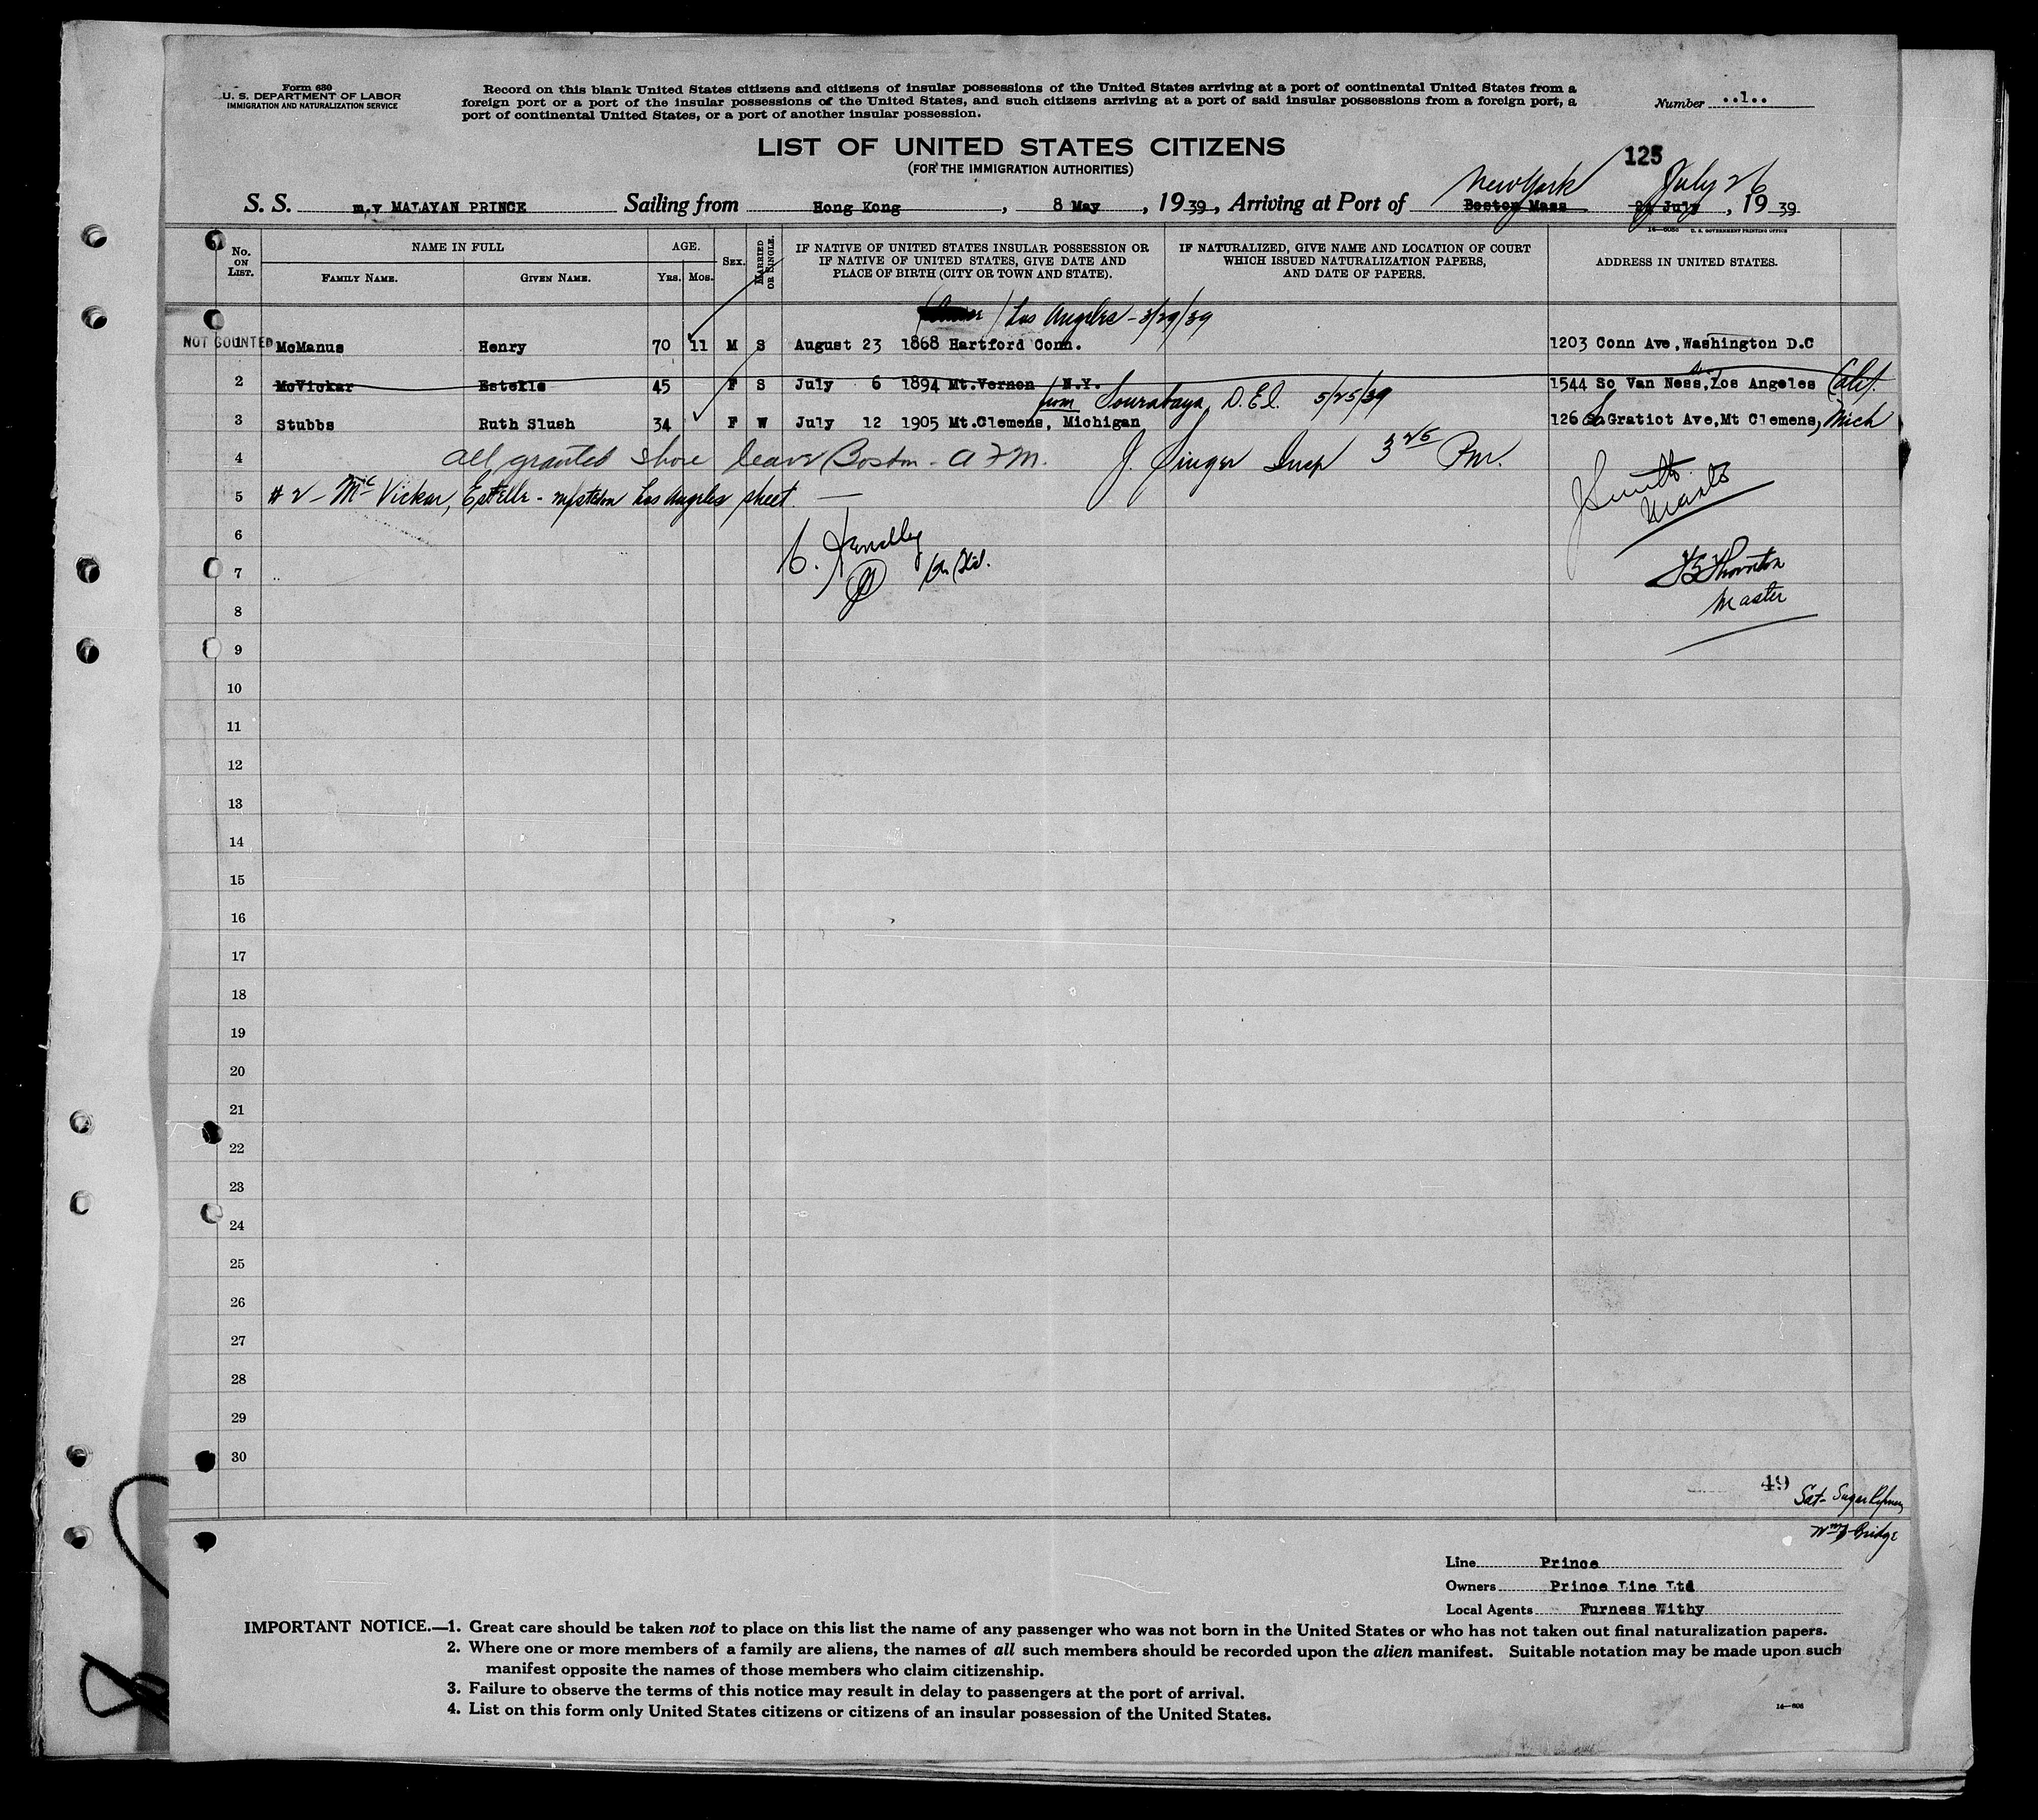 Form 630
U. S. DEPARTMENT OF LABOR
IMMIGRATION AND NATURALIZATION SERVICE
Record on this blank United States citizens and citizens of insular possessions of the United States arriving at a port of continental United States from a
foreign port or a port of the insular possessions of the United States, and such citizens arriving at a port of said insular possessions from a foreign port, a
port of continental United States, or a port of another insular possession.
Number ..1..
LIST OF UNITED STATES CITIZENS
(FOR THE IMMIGRATION AUTHORITIES)
125
New York July 26
S. S. m.v MALAYAN PRINCE Sailing from Hong Kong, 8 May, 1939, Arriving at Port of Boston Mass 24 July, 1939
U. S. GOVERNMENT PRINTING OFFICE
No. ON LIST.
NAME IN FULL
FAMILY NAME. GIVEN NAME.
AGE.
YRS. MOS.
SEX.
MARRIED OR SINGLE.
IF NATIVE OF UNITED STATES INSULAR POSSESSION OR
IF NATIVE OF UNITED STATES, GIVE DATE AND
PLACE OF BIRTH (CITY OR TOWN AND STATE).
IF NATURALIZED, GIVE NAME AND LOCATION OF COURT
WHICH ISSUED NATURALIZATION PAPERS,
AND DATE OF PAPERS.
ADDRESS IN UNITED STATES.
Los Angeles - 3/29/39
NOT COUNTED
1 McManus Henry 70 11 M S August 23 1868 Hartford Conn. 1203 Conn Ave, Washington D.C
2 McVickar Estelle 45 F S July 6 1894 Mt.Vernon N.Y. 1544 So Van Ness, Los Angeles Calif.
from Sourabaya, D.E.I. 5/25/39
3 Stubbs Ruth Slush 34 F W July 12 1905 Mt.Clemens, Michigan 126 So.Gratiot Ave,Mt Clemens, Mich
4 all granted shore leave Boston - A.F.M. J. Singer Insp 3 25 Pm.
5 #2 - McVickar, Estelle - Los Angeles sheet.
6
7
F Thornton
Master
8
9
10
11
12
13
14
15
16
17
18
19
20
21
22
23
24
25
26
27
28
29
30
49
Sat- Sugar
Wmb Bridge
Line Prince
Owners Prince Line Ltd
Local Agents Furness Withy
IMPORTANT NOTICE.—1. Great care should be taken not to place on this list the name of any passenger who was not born in the United States or who has not taken out final naturalization papers.
2. Where one or more members of a family are aliens, the names of all such members should be recorded upon the alien manifest. Suitable notation may be made upon such
manifest opposite the names of those members who claim citizenship.
3. Failure to observe the terms of this notice may result in delay to passengers at the port of arrival.
4. List on this form only United States citizens or citizens of an insular possession of the United States.